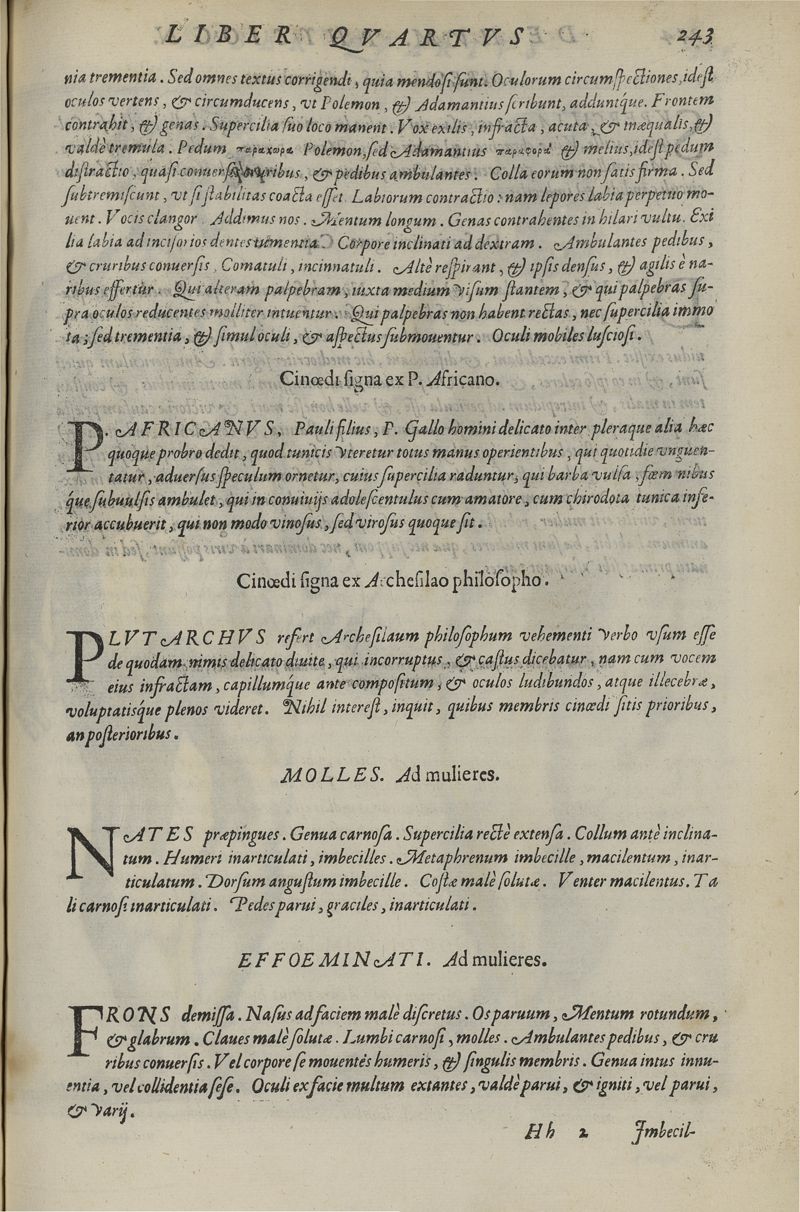 LIBER QVARTVS 243
nia trementia. Sed omnes textus corrigendi, quia mendosi sunt. Oculorum circumspectiones, idest
oculos vertens, & circumducens, vt Polemon, & Adamantius scribunt, adduntque. Frontem
contrahit, & genas. Supercilia suo loco manent. Vox exilis, infracta, acuta, & inæqualis, &
valdè tremula. Pedum Polemon, sed Adamantius & melius, idest pedum
distractio, quasi conuersis ribus, & pedibus ambulantes. Colla eorum non satis firma. Sed
subtremiscunt, vt si stabilitas coacta esset. Labiorum contractio: nam lepores labia perpetuo mo-
uent. Vocis clangor. Addimus nos. Mentum longum. Genas contrahentes in hilari vultu. Exi
lia labia ad incisorios dentes tumentia. Corpore inclinati ad dextram. Ambulantes pedibus,
& cruribus conuersis. Comatuli, incinnatuli. Altè respirant, & ipsis densus, & agilis è na-
ribus effertur. Qui alteram palpebram, iuxta medium visum stantem, & qui palpebras su-
pra oculos reducentes molliter intuentur. Qui palpebras non habent rectas, nec supercilia immo
ta; sed trementia, & simul oculi, & aspectus submouentur. Oculi mobiles lusciosi.
Cinœdi signa ex P. Africano.
P. AFRICANVS, Pauli filius, P. Gallo homini delicato inter pleraque alia hæc
quoque probro dedit, quod tunicis vteretur totus manus operientibus, qui quotidie vnguen-
tatur, aduersus speculum ornetur, cuius supercilia raduntur, qui barba vulsa, fœminibus
que subuulsis ambulet, qui in conuiuijs adolescentulus cum amatore, cum chirodota tunica infe-
rior accubuerit, qui non modo vinosus, sed virosus quoque sit.
Cinœdi signa ex Archesilao philosopho.
PLVTARCHVS refert Archesilaum philosophum vehementi verbo vsum esse
de quodam nimis delicato diuite, qui incorruptus, & castus dicebatur, nam cum vocem
eius infractam, capillumque ante compositum, & oculos ludibundos, atque illecebræ,
voluptatisque plenos videret. Nihil interest, inquit, quibus membris cinœdi sitis prioribus,
an posterioribus.
MOLLES. Ad mulieres.
NATES præpingues. Genua carnosa. Supercilia rectè extensa. Collum antè inclina-
tum. Humeri inarticulati, imbecilles. Metaphrenum imbecille, macilentum, inar-
ticulatum. Dorsum angustum imbecille. Costæ malè solutæ. Venter macilentus. Ta
li carnosi inarticulati. Pedes parui, graciles, inarticulati.
EFFOEMINATI. Ad mulieres.
FRONS demissa. Nasus ad faciem malè discretus. Os paruum, Mentum rotundum,
& glabrum. Claues malè solutæ. Lumbi carnosi, molles. Ambulantes pedibus, & cru
ribus conuersis. Vel corpore se mouentes humeris, & singulis membris. Genua intus innu-
entia, vel collidentia sese. Oculi ex facie multum extantes, valdè parui, & igniti, vel parui,
& varij.
Hh 2 Imbecil-